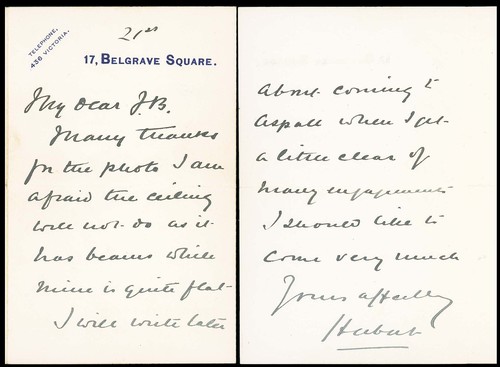 21st
TELEPHONE,
436 VICTORIA.
17, BELGRAVE SQUARE.
My dear J.B.
Many thanks
for the photo I am
afraid the ceiling
will not do as it
has beams while
mine is quite flat-
I will write later
about coming to
Aspall when I get
a little clear of
many engagements
I should like to
come very much
Yours affectly
Hubert